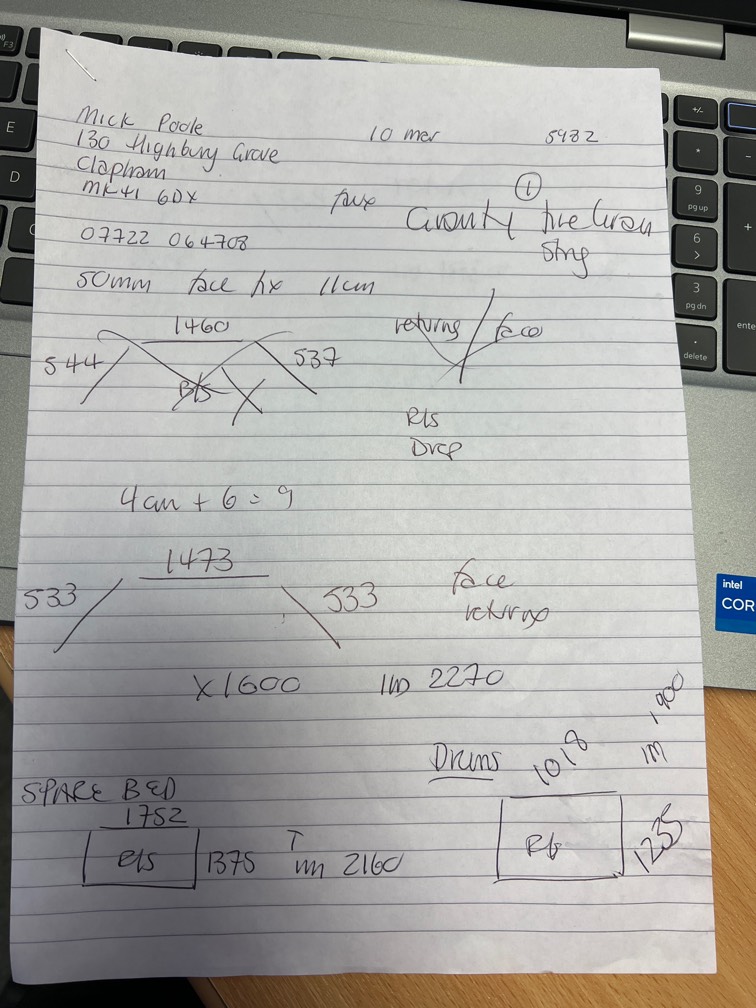 Mick Poole
10 mar
5982
130 Highbury Grove
Clapham
MK41 6DX
①
07722 064708
50mm face fix 11cm
1460
544
537
B/S
returns / face
R/S
Drop
4cm + 6 = 9
1473
533
533
face
returns
X1600
2270
1018
1900
1M
SPARE BED
1752
R/S
1375
2160
1235
E
D
F3
+/-
*
-
9
pg up
+
6
>
3
pg dn
.
delete
enter
intel
COR